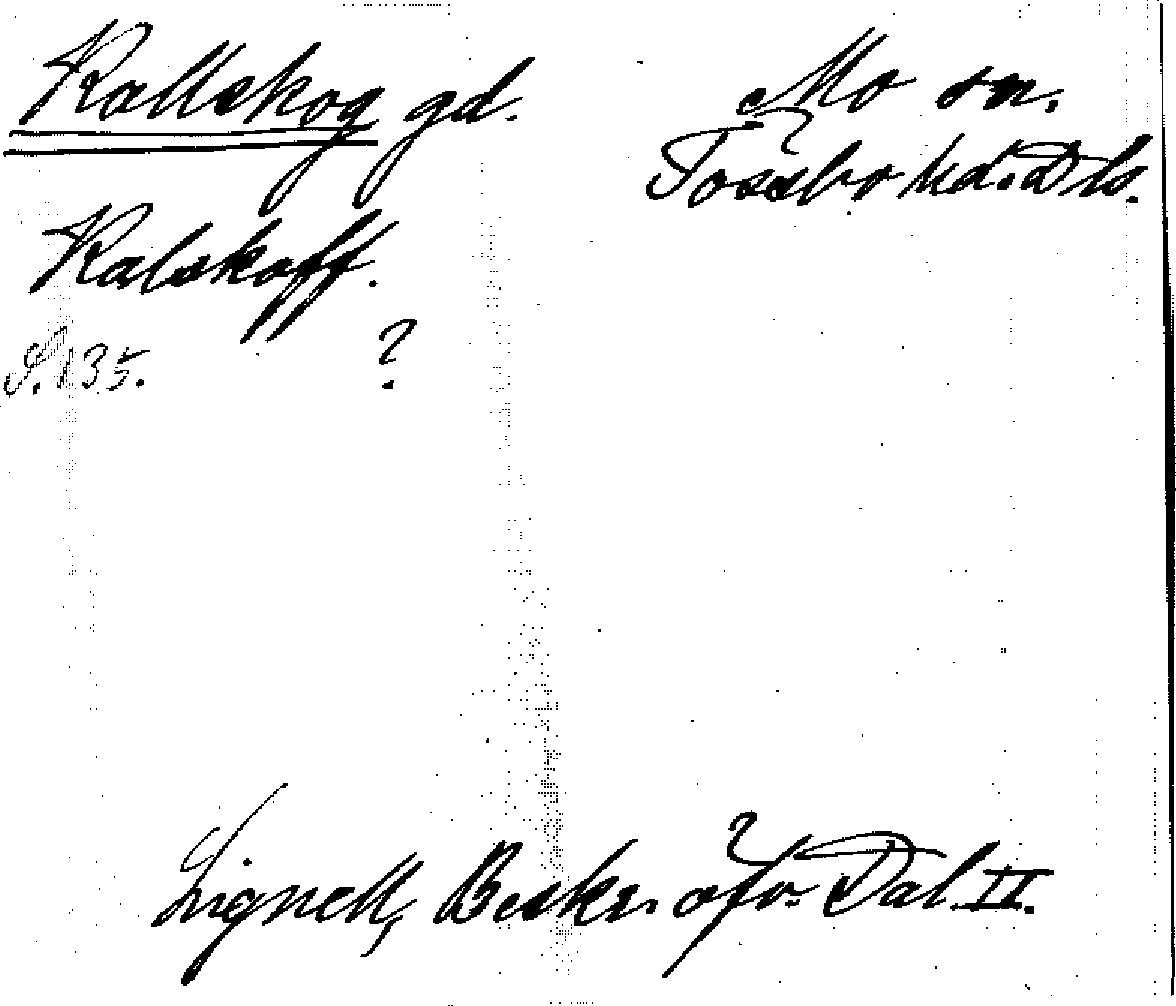 Kallskog gd.
Mo sn.
Tössbo hd. Dls.
Kalskoff.
S. 135. ?
Lignell, Beskr. öfv. Dal. II.